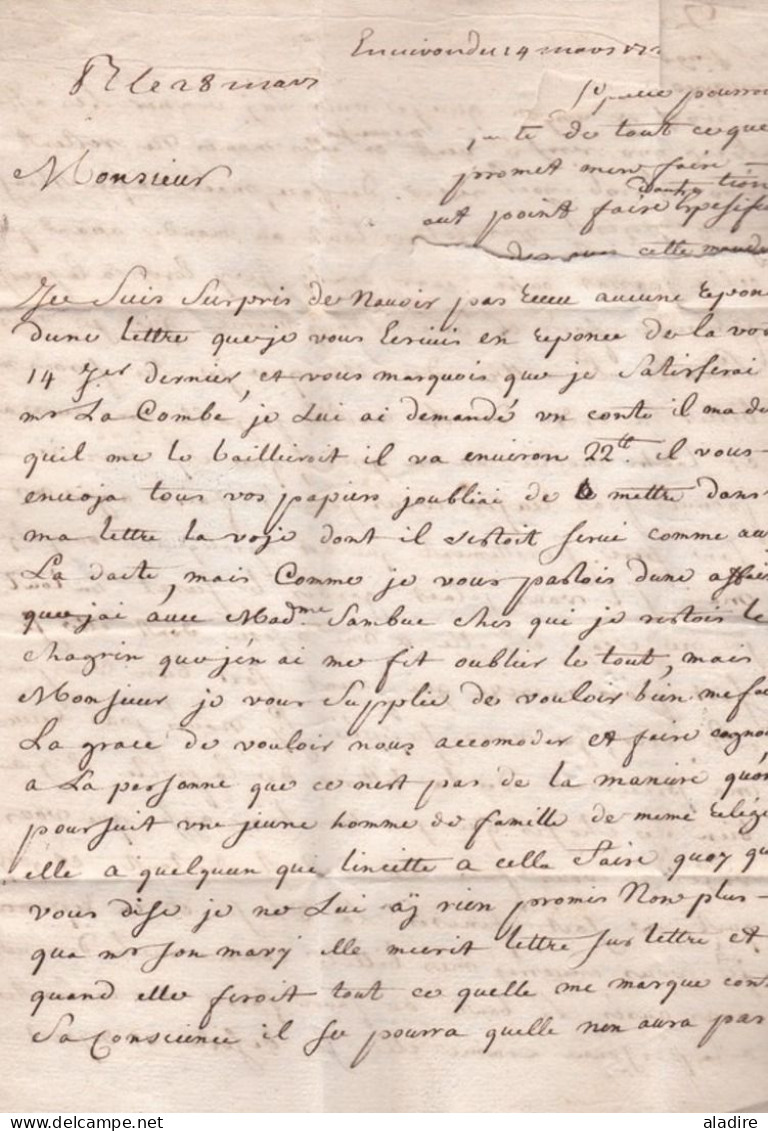 14 mars
le 28 mars
pourroi
te de tout ceque
promet men faire
dautre tion
aut point faire
cette
Monsieur
Je Suis Surpris de Navoir pas Receu aucune Repon
dune lettre queje vous Escrivis en reponce de la vo
14 7er dernier, et vous marquois que je Satisferai
mr La Combe, je Lui ai demandé vn conte il ma d
quil me le bailleiroit il va environ 22tt. il vous
envoja tous vos papiers joubliai de mettre dans
ma lettre la voje dont il sestoit servi comme au
La dacte, mais Comme je vous parlois dune affair
que jai avec Madme Sambuc ches qui je restois le
chagrin que jén ai me fit oublier le tout, mais
Monsieur je vous Supplie de vouloir bien me fa
La grace de vouloir nous accomoder et faire cognoi
a La personne que ce nest pas de la maniere quón
poursuit vne jeune homme de famille de meme Relig
elle a quelquun qui lincitte a cella faire quoy qu
vous dise je ne Lui aÿ rien promis Non plus
qua mr son marÿ elle mecrit lettre sur lettre et
quand elle feroit tout ce quelle me marque cont
Sa Conscience il se pourra quelle nen aura pas
aladire